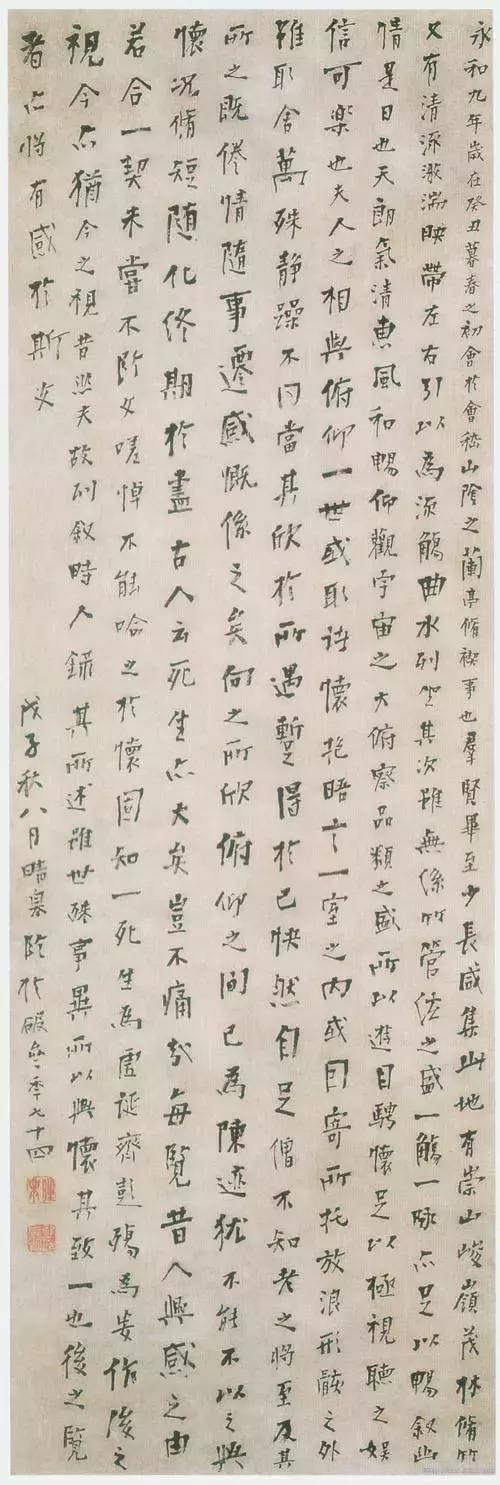 永和九年歲在癸丑暮春之初會於會嵇山陰之蘭亭脩禊事也羣賢畢至少長咸集此地有崇山峻嶺茂林脩竹
又有清流激湍映帶左右引以為流觴曲水列坐其次雖無絲竹管絃之盛一觴一詠亦足以暢叙幽
情是日也天朗氣清惠風和暢仰觀宇宙之大俯察品類之盛所以遊目騁懷足以極視聽之娛
信可樂也夫人之相與俯仰一世或取諸懷抱晤言一室之內或因寄所托放浪形骸之外
雖取舍萬殊静躁不同當其欣於所遇暫得於己快然自足僧不知老之將至及其
所之既倦情隨事遷感慨係之矣向之所欣俯仰之間已為陳迹猶不能不以之興
懷況脩短隨化終期於盡古人云死生亦大矣豈不痛哉每覽昔人興感之由
若合一契未嘗不臨文嗟悼不能喻之於懷固知一死生為虛誕齊彭殤為妄作後之
視今亦猶今之視昔悲夫故列叙時人錄其所述雖世殊事異所以興懷其致一也後之覽
者亦將有感於斯文
戊子秋八月晴皋臨於 年七十四